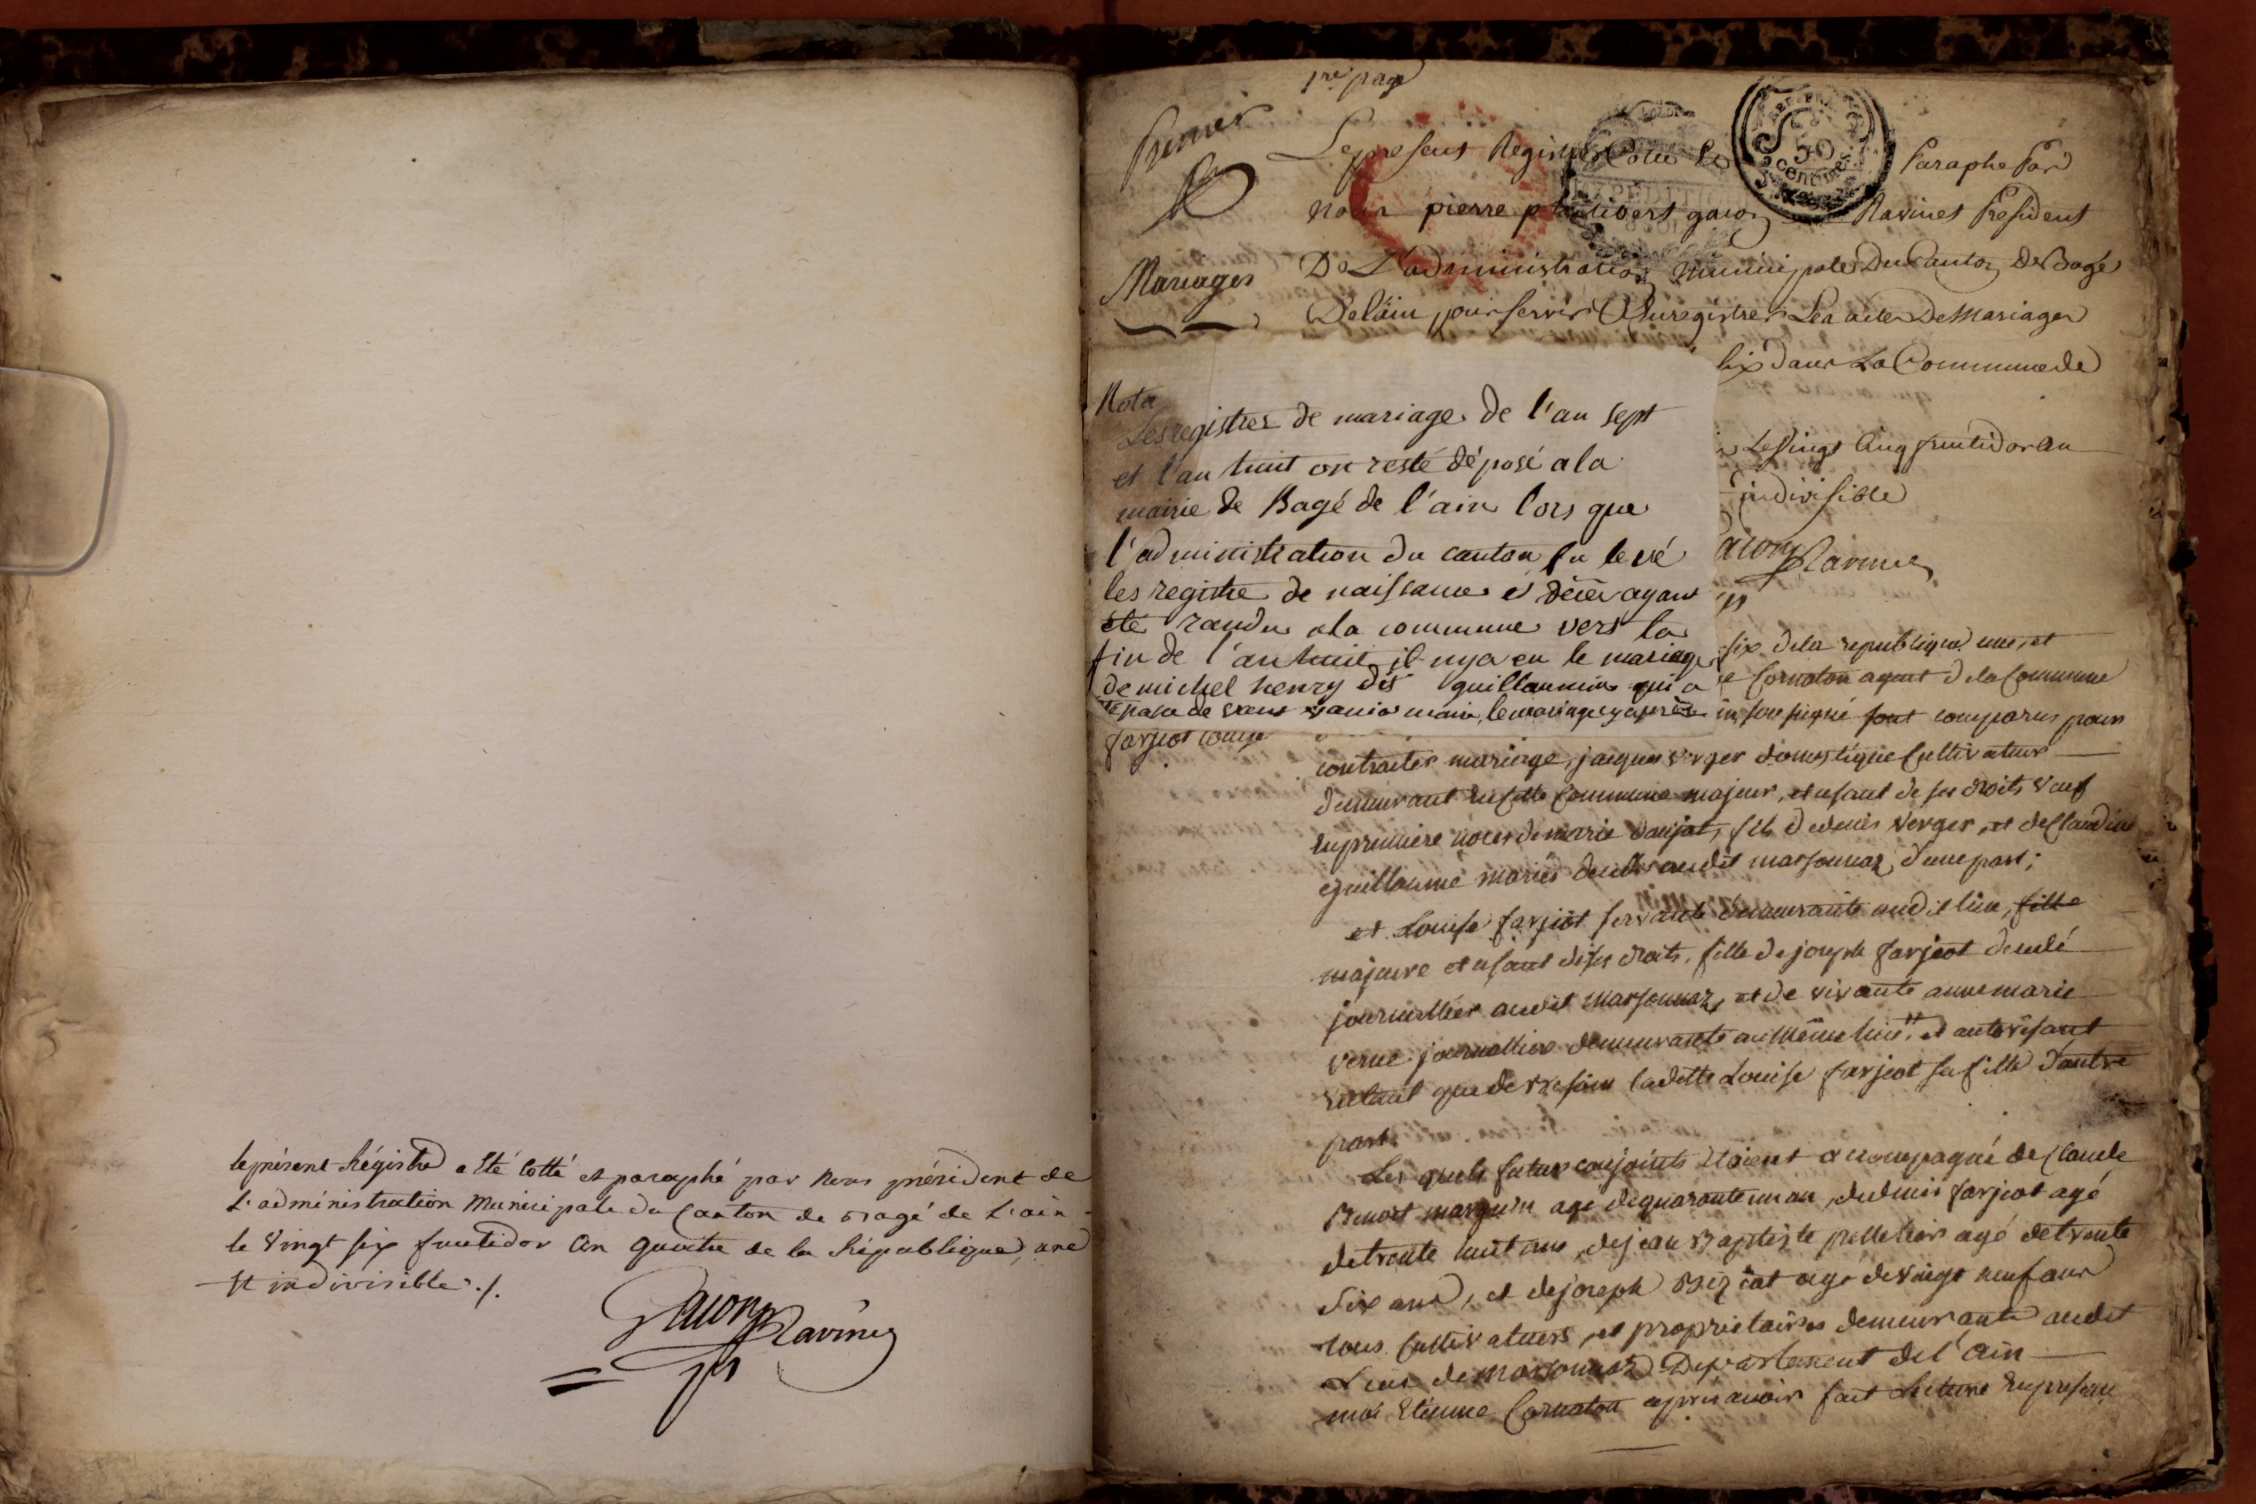 le présent Régistre a été cotté et paraphé par Nous président de
L'administration Municipale du Canton de Bagé de L'ain
le vingt six fructidor an quatre de la République, une
et indivisible ./.
Gacon Ravinet
pt
1re page
Premier
Mariages
Le present Registre Cotté et Paraphé Par
Nous pierre philibert gacon Ravinet President
De L'administration municipale Du Canton De Bagé
De l'ain pour servir A Enregistrer Les actes De Mariages
REP. FRA.
50
CENTIMES
dans La Commune de
Le Vingt Cinq fructidor an
indivisible
Gacon Ravinet
Nota
Les registres de mariage de l'an sept
et l'an huit on resté déposé a la
mairie de Bagé de l'ain lors que
l'administration du canton fu levé
les registre de naissance et décès ayant
été randu a la commune vers la
fin de l'an huit il nya eu le mariage
de michel henry dit guillaumin qui a
farjeot louise
six dela republique une, et
Cornaton agent dela Commune
soussigné sont comparus pour
contracter mariage, jacques verger domestique Cultivateur
demeurant en cette Commune majeur, et usant de ses droits veuf
en premiere noces de marie Donjat, fils de denis verger, et de Claudine
guillaume mariés audit marsonnaz, d'une part;
et Louise farjeot servante demeurante audit lieu, fille
majeure et usant de ses droits, fille de joseph farjeot
journallier audit marsonnaz, et de vivante anne marie
verne journalliere demeurante au même lieu, et autorisant
ladette Louise farjeot sa fille d'autre
part.
Les quels futurs conjoints étoient accompagné de Claude
Benoit marguin agé de quarante un an, de denis farjeot agé
de trente huit ans, de jean Baptiste pelletier agé de trente
six ans, et de joseph Beziat agé de vingt neuf ans
tous Cultivateurs, et proprietaires demeurants audit
Lieu de marsonnaz Departement de l'ain
moi Etienne Cornaton après avoir fait lecture en presence